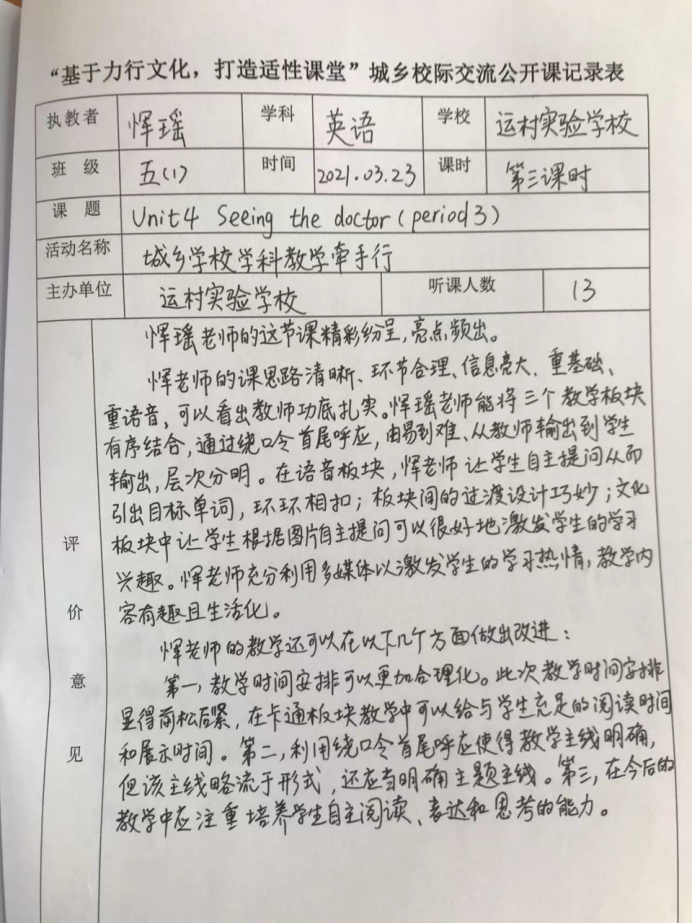 “基于力行文化，打造适性课堂”城乡校际交流公开课记录表
执教者 恽瑶 学科 英语 学校 运村实验学校
班 级 五(1) 时间 2021.03.23 课时 第三课时
课 题 Unit4 Seeing the doctor (period 3)
活动名称 城乡学校学科教学牵手行
主办单位 运村实验学校 听课人数 13
评价意见
恽瑶老师的这节课精彩纷呈，亮点频出。
恽老师的课思路清晰、环节合理、信息亮大、重基础、
重语音，可以看出教师功底扎实。恽瑶老师能将三个教学板块
有序结合，通过绕口令首尾呼应，由易到难、从教师输出到学生
输出，层次分明。在语音板块，恽老师让学生自主提问从而
引出目标单词，环环相扣；板块间的过渡设计巧妙；文化
板块中让学生根据图片自主提问可以很好地激发学生的学习
兴趣。恽老师充分利用多媒体以激发学生的学习热情，教学内
容有趣且生活化。
恽老师的教学还可以在以下几个方面做出改进：
第一，教学时间安排可以更加合理化。此次教学时间安排
显得前松后紧，在卡通板块教学中可以给与学生充足的阅读时间
和展示时间。第二，利用绕口令首尾呼应使得教学主线明确，
但该主线略流于形式，还应当明确主题主线。第三，在今后的
教学中应注重培养学生自主阅读、表达和思考的能力。